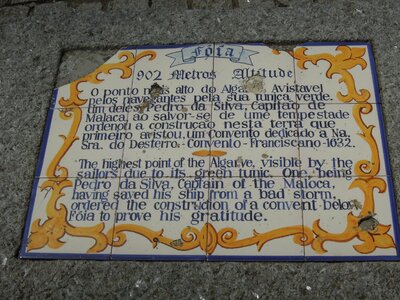 Fóia
902 Metros Altitude
O ponto mais alto do Algarve Avistavel
pelos navegantes pela sua tunica verde.
Um deles, Pedro da Silva, Capitão de
Malaca, ao salvor-se de ume tempestade
ordenoti a construção nesta terra que
primeiro avistou, um Convento dedicado a Na.
Sra. do Desterro: Convento - Franciscano -1632.
The highest point of the Algarve, visible by the
sailors due to its green tunic. One, being
Pedro da Silva, Captain of the Maloca,
having saved his ship from a bad storm,
ordered the construction of a convent below
Fóia to prove his gratitude.